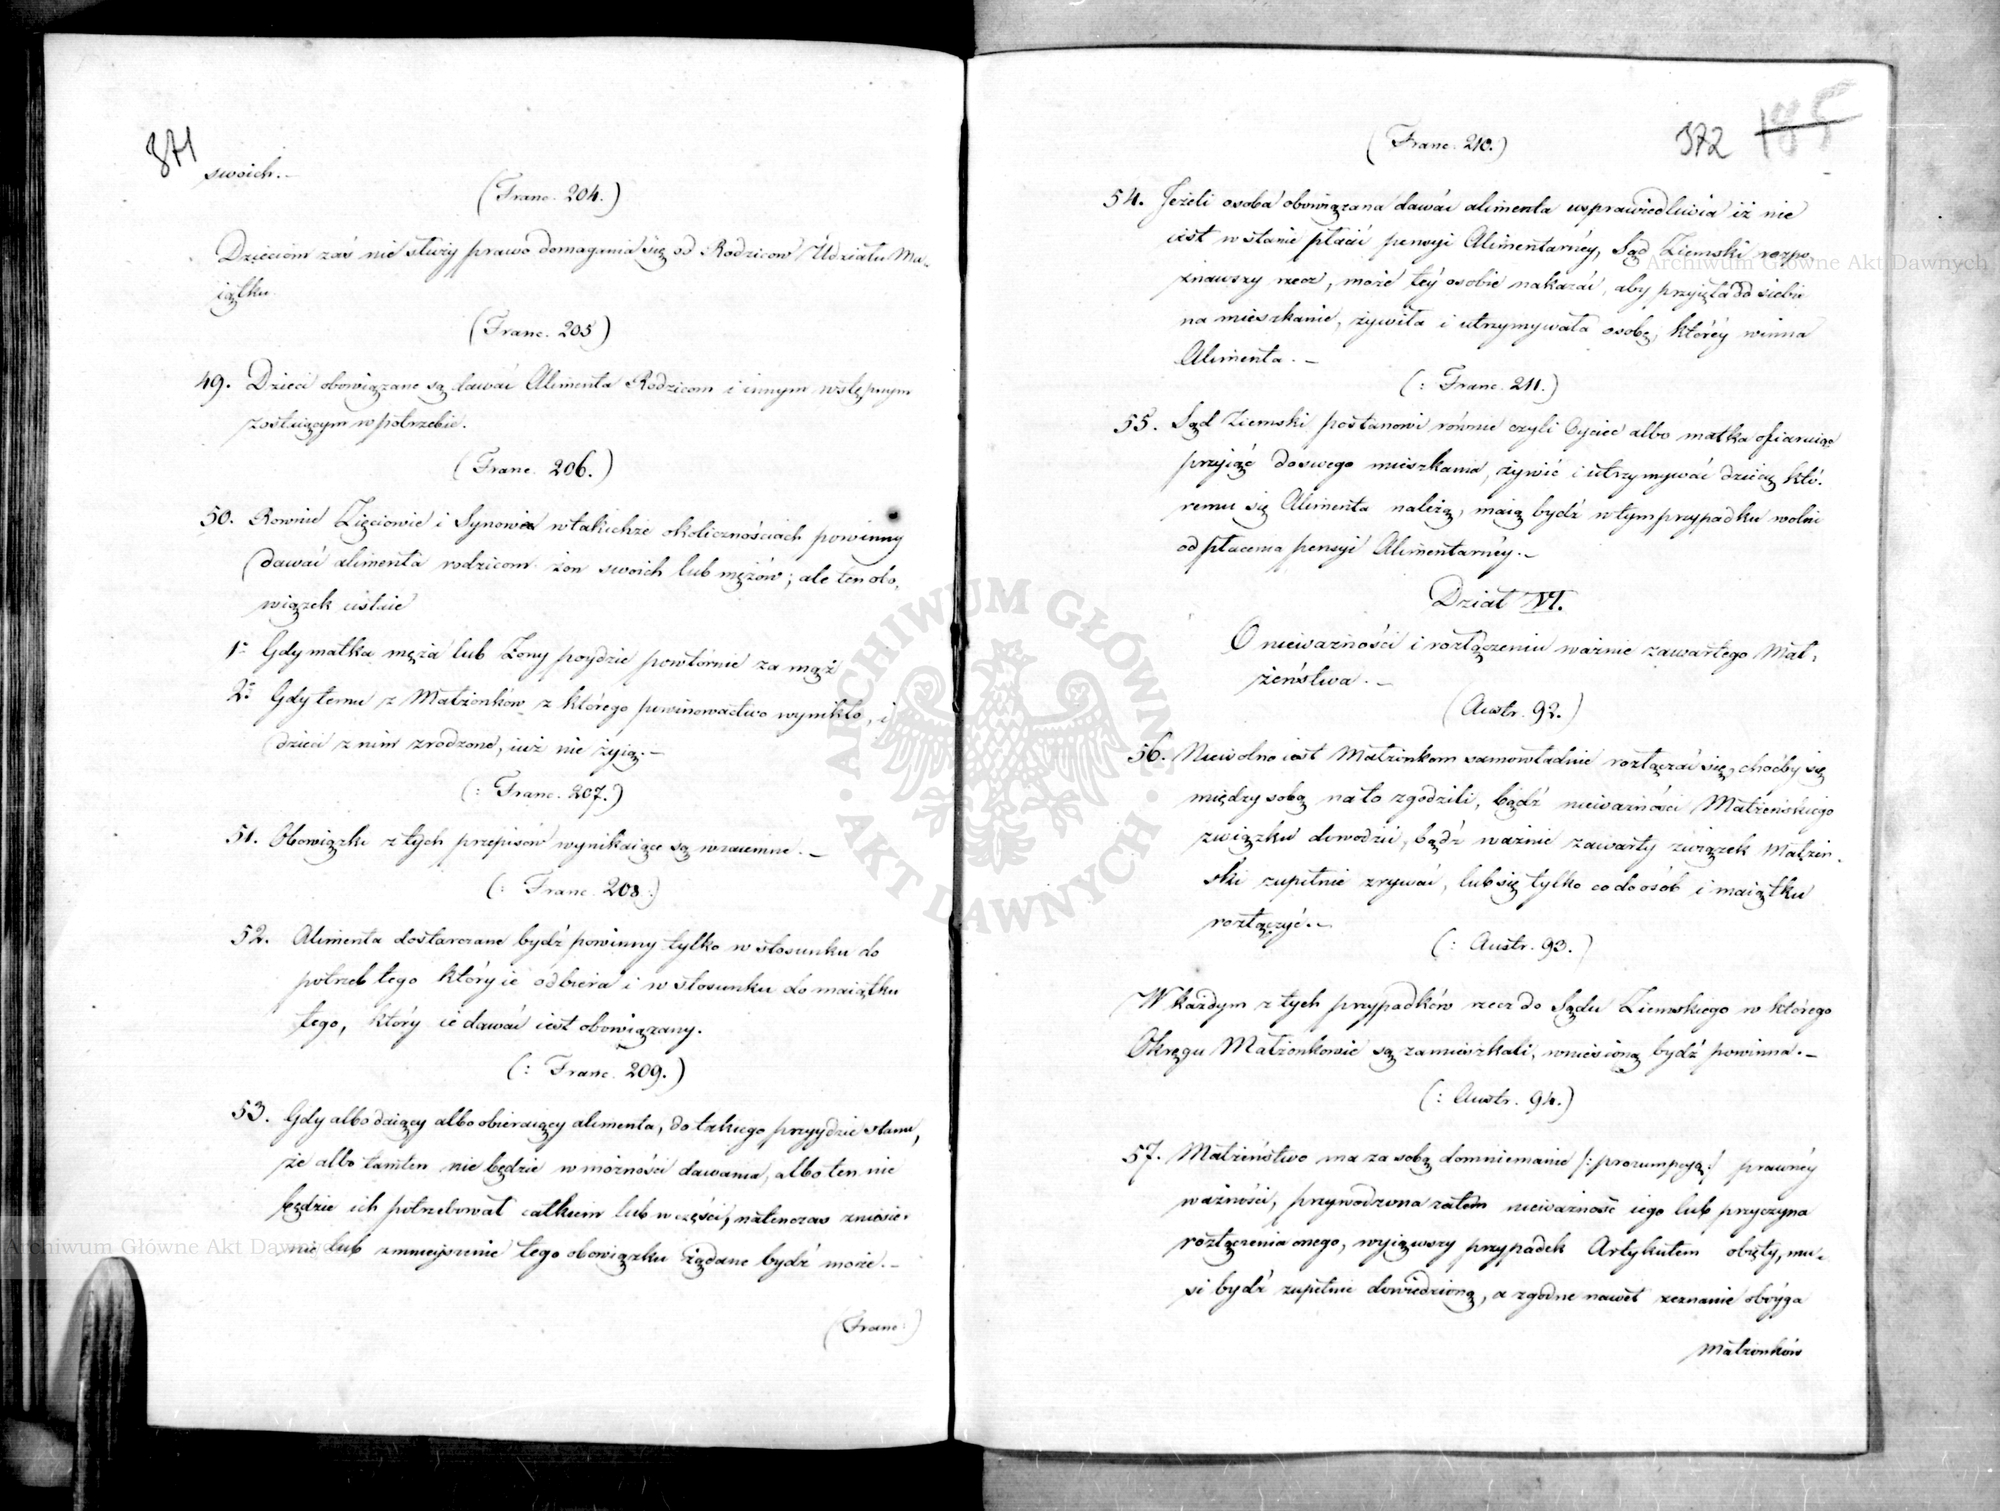 371
swoich.-
(Franc. 204.)
Dzieciom zaś nie służy prawo domagania się od Rodzicow Udziału Ma-
iątku.
(Franc. 205)
49. Dzieci obowiązane są dawać Alimenta Rodzicom i innym wstępnym
zostaiącym w potrzebie.
(Franc. 206.)
50. Rownie Zięciowie i Synowe w takichże okolicznościach powinny
dawać alimenta rodzicom żon swoich lub mężów; ale ten obo-
wiązek ustaie
1° Gdy matka męża lub Żony poydzie powtórnie za mąż
2° Gdy temu z Małżonków z którego powinowactwo wynikło, i
dzieci z nim zrodzone, iuż nie żyią.-
(: Franc. 207.)
51. Obowiązki z tych przepisów wynikaiące są wzaiemne.-
(: Franc. 208.)
52. Alimenta dostarczane bydź powinny tylko w stosunku do
potrzeb tego który ie odbiera i w stosunku do maiątku
tego, który ie dawać iest obowiązany.
(: Franc. 209.)
53. Gdy albo daiący albo obieraiący alimenta, do takiego przyydzie stanu,
że albo tamten nie będzie w możności dawania, albo ten nie
będzie ich potrzebował całkiem lub w części, natenczas zniesie-
nie lub zmnieyszenie tego obowiązku żądane bydź może.-
(Franc.)
372 185
(Franc. 210.)
54. Jeżeli osoba obowiązana dawać alimenta usprawiedliwia iż nie
iest w stanie płacić pensyi Alimentarnéy, Sąd Ziemski rozpo-
znawszy rzecz, może téy osobie nakazać, aby przyięła do siebie
na mieszkanie, żywiła i utrzymywała osobę, któréy winna
Alimenta.-
(: Franc. 211.)
55. Sąd Ziemski postanowi równie czyli Oyciec albo matka ofiaruiąc
przyiąć do swego mieszkania, żywić i utrzymywać dziecię któ-
remu się Alimenta należą, maią bydź w tym przypadku wolni
od płacenia pensyi Alimentarnéy.-
Dział VI.
O nieważności i rozłączeniu ważnie zawartego Mał-
żeństwa.-
(Austr. 92.)
56. Niewolno iest Małżonkom samowładnie rozłączać się, choćby się
między sobą na to zgodzili, bądź nieważności Małżeńskiego
związku dowodzić, bądź ważnie zawarty związek Małżeń-
ski zupełnie zrywać, lub się tylko co do osób i maiątku
rozłączyć.-
(: Austr. 93.)
W każdym z tych przypadków rzecz do Sądu Ziemskiego w którego
Okręgu Małżonkowie są zamieszkali, wniesioną bydź powinna.-
(: Austr. 94.)
57. Małżeństwo ma za sobą domniemanie /: prezumpcyą :/ prawnéy
ważności, przywodzona zatém nieważność iego lub przyczyna
rozłączenia onego, wyiąwszy przypadek Artykułem obięty, mu-
si bydź zupełnie dowiedzioną, a zgodne nawet zeznanie oboyga
Małżonków
Archiwum Główne Akt Dawnych
Archiwum Główne Akt Dawnych
ARCHIWUM GŁÓWNE · AKT DAWNYCH ·